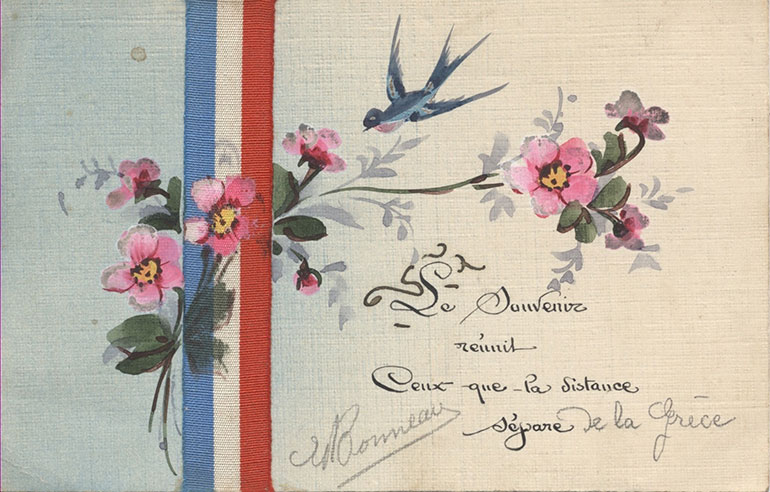 Le Souvenir
réunit
Ceux que la distance
sépare de la Grèce